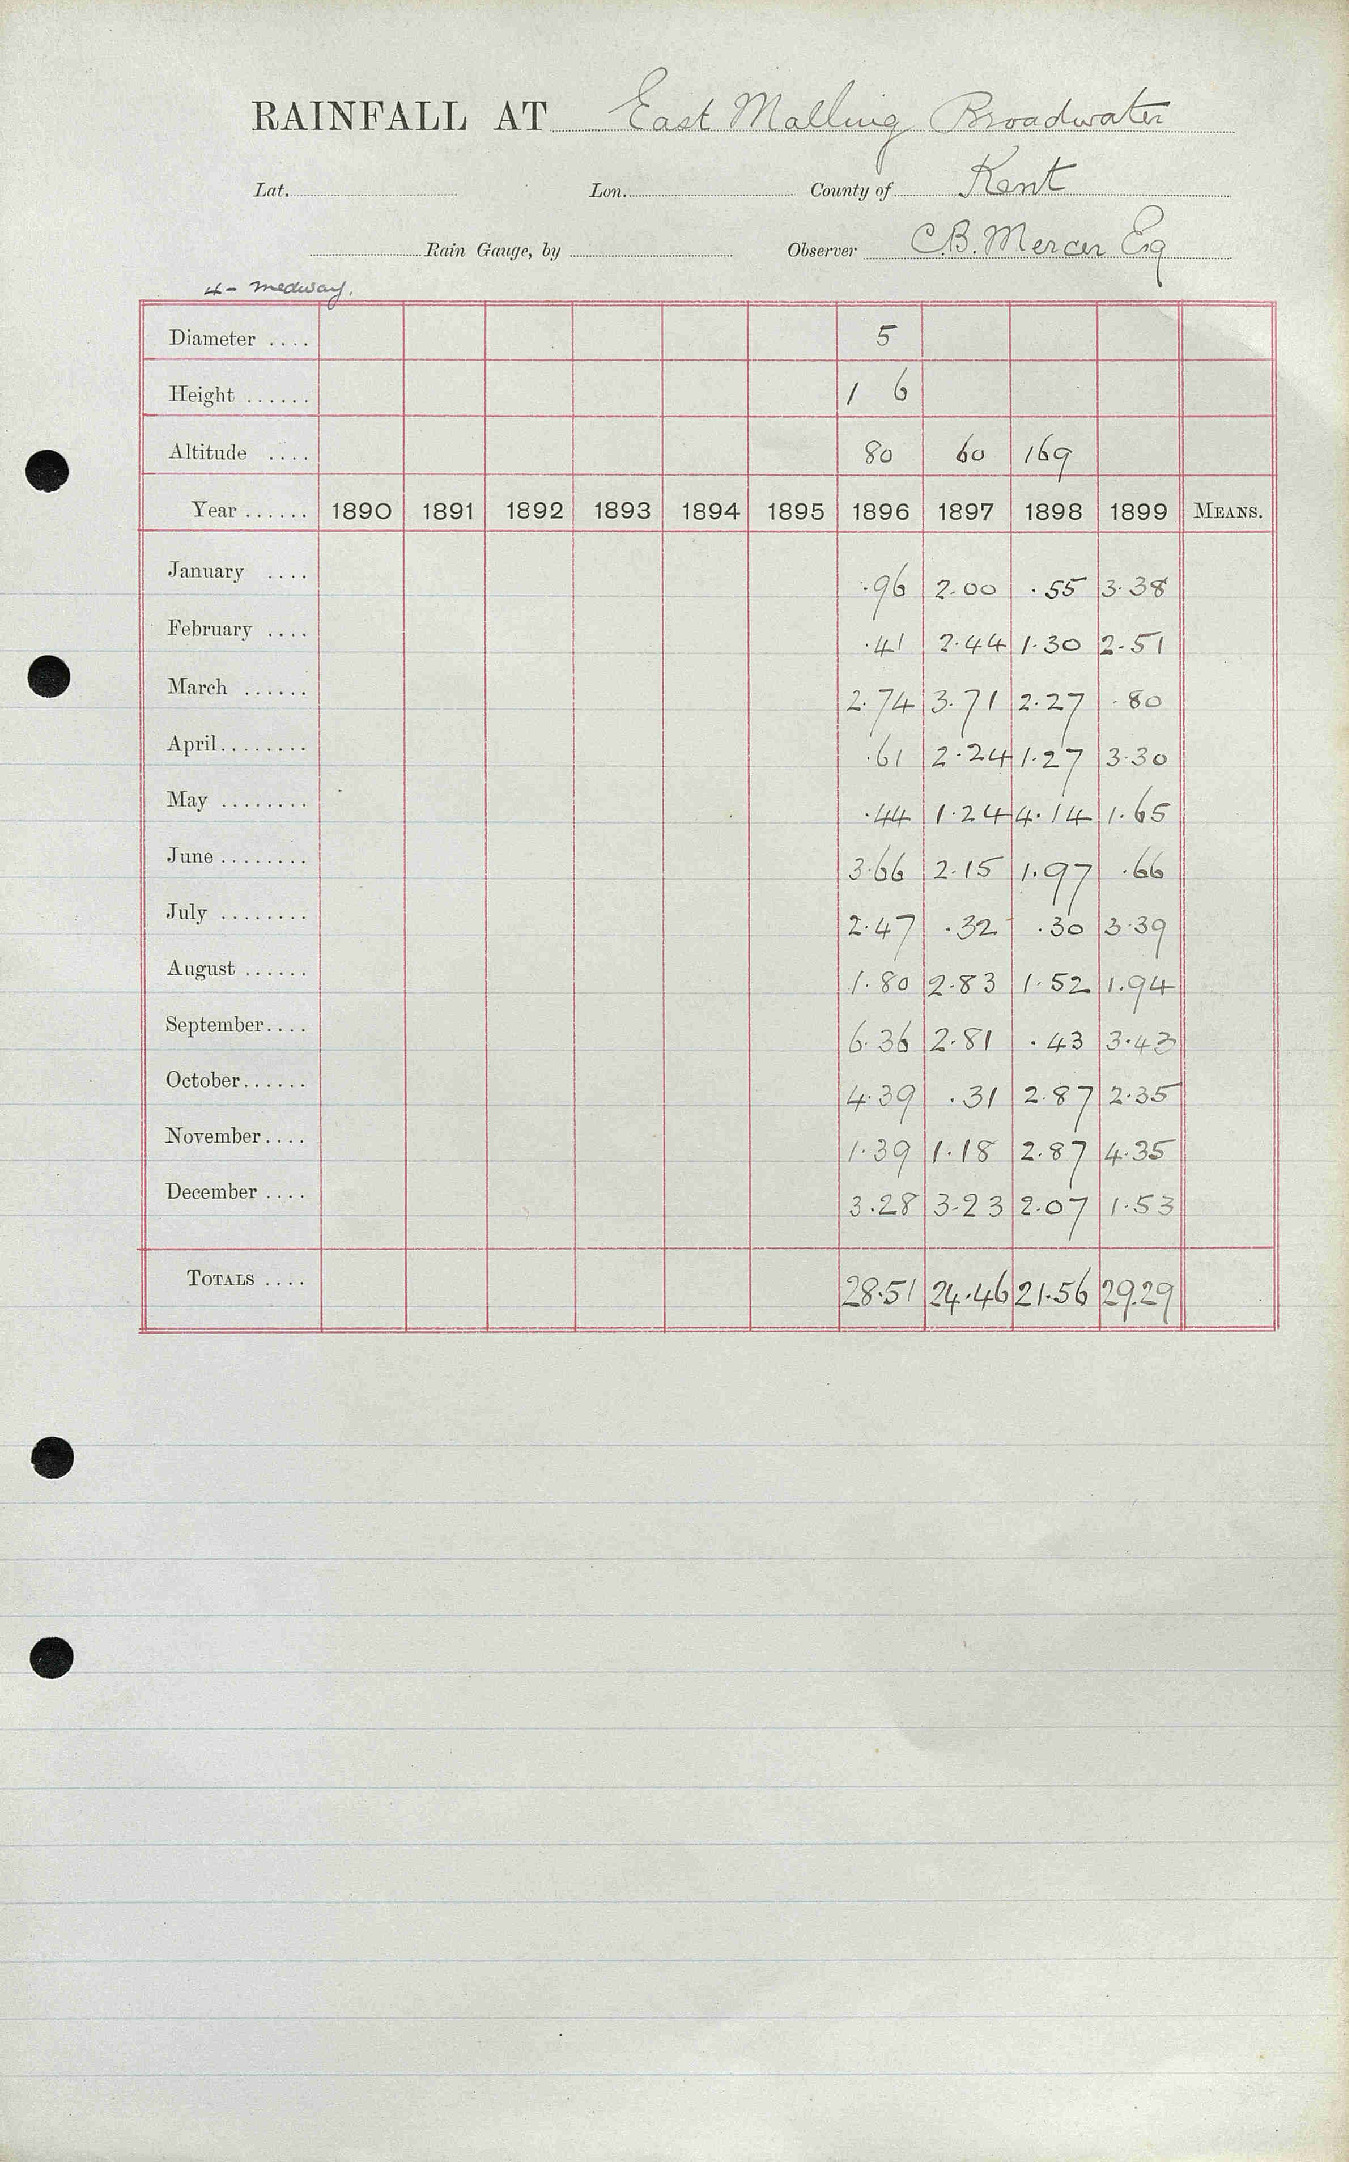 RAINFALL AT East Malling Broadwater
Lat. Lon. County of Kent
Rain Gauge, by Observer C.B. Mercer Esq
4 - Medway.
Diameter .... 5
Height ...... 1 6
Altitude .... 80 60 169
Year ...... 1890 1891 1892 1893 1894 1895 1896 1897 1898 1899 MEANS.
January .... .96 2.00 .55 3.38
February .... .41 2.44 1.30 2.51
March ...... 2.74 3.71 2.27 .80
April........ .61 2.24 1.27 3.30
May ........ .44 1.24 4.14 1.65
June ........ 3.66 2.15 1.97 .66
July ........ 2.47 .32 .30 3.39
August ...... 1.80 2.83 1.52 1.94
September.... 6.36 2.81 .43 3.43
October...... 4.39 .31 2.87 2.35
November.... 1.39 1.18 2.87 4.35
December .... 3.28 3.23 2.07 1.53
TOTALS .... 28.51 24.46 21.56 29.29